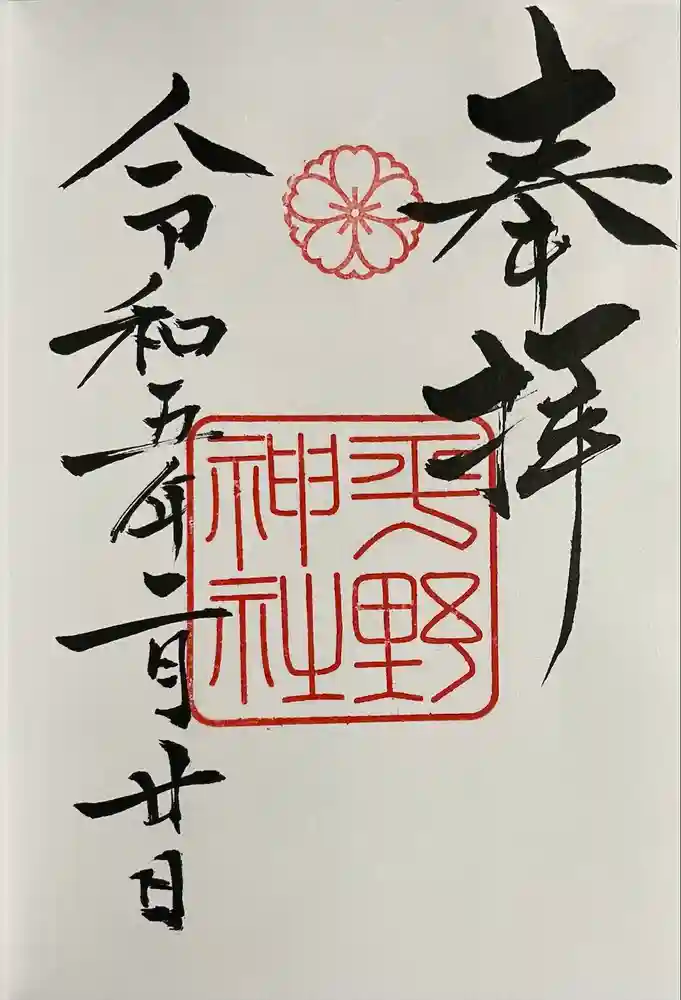 奉拝
平野
神社
令和五年二月廿日